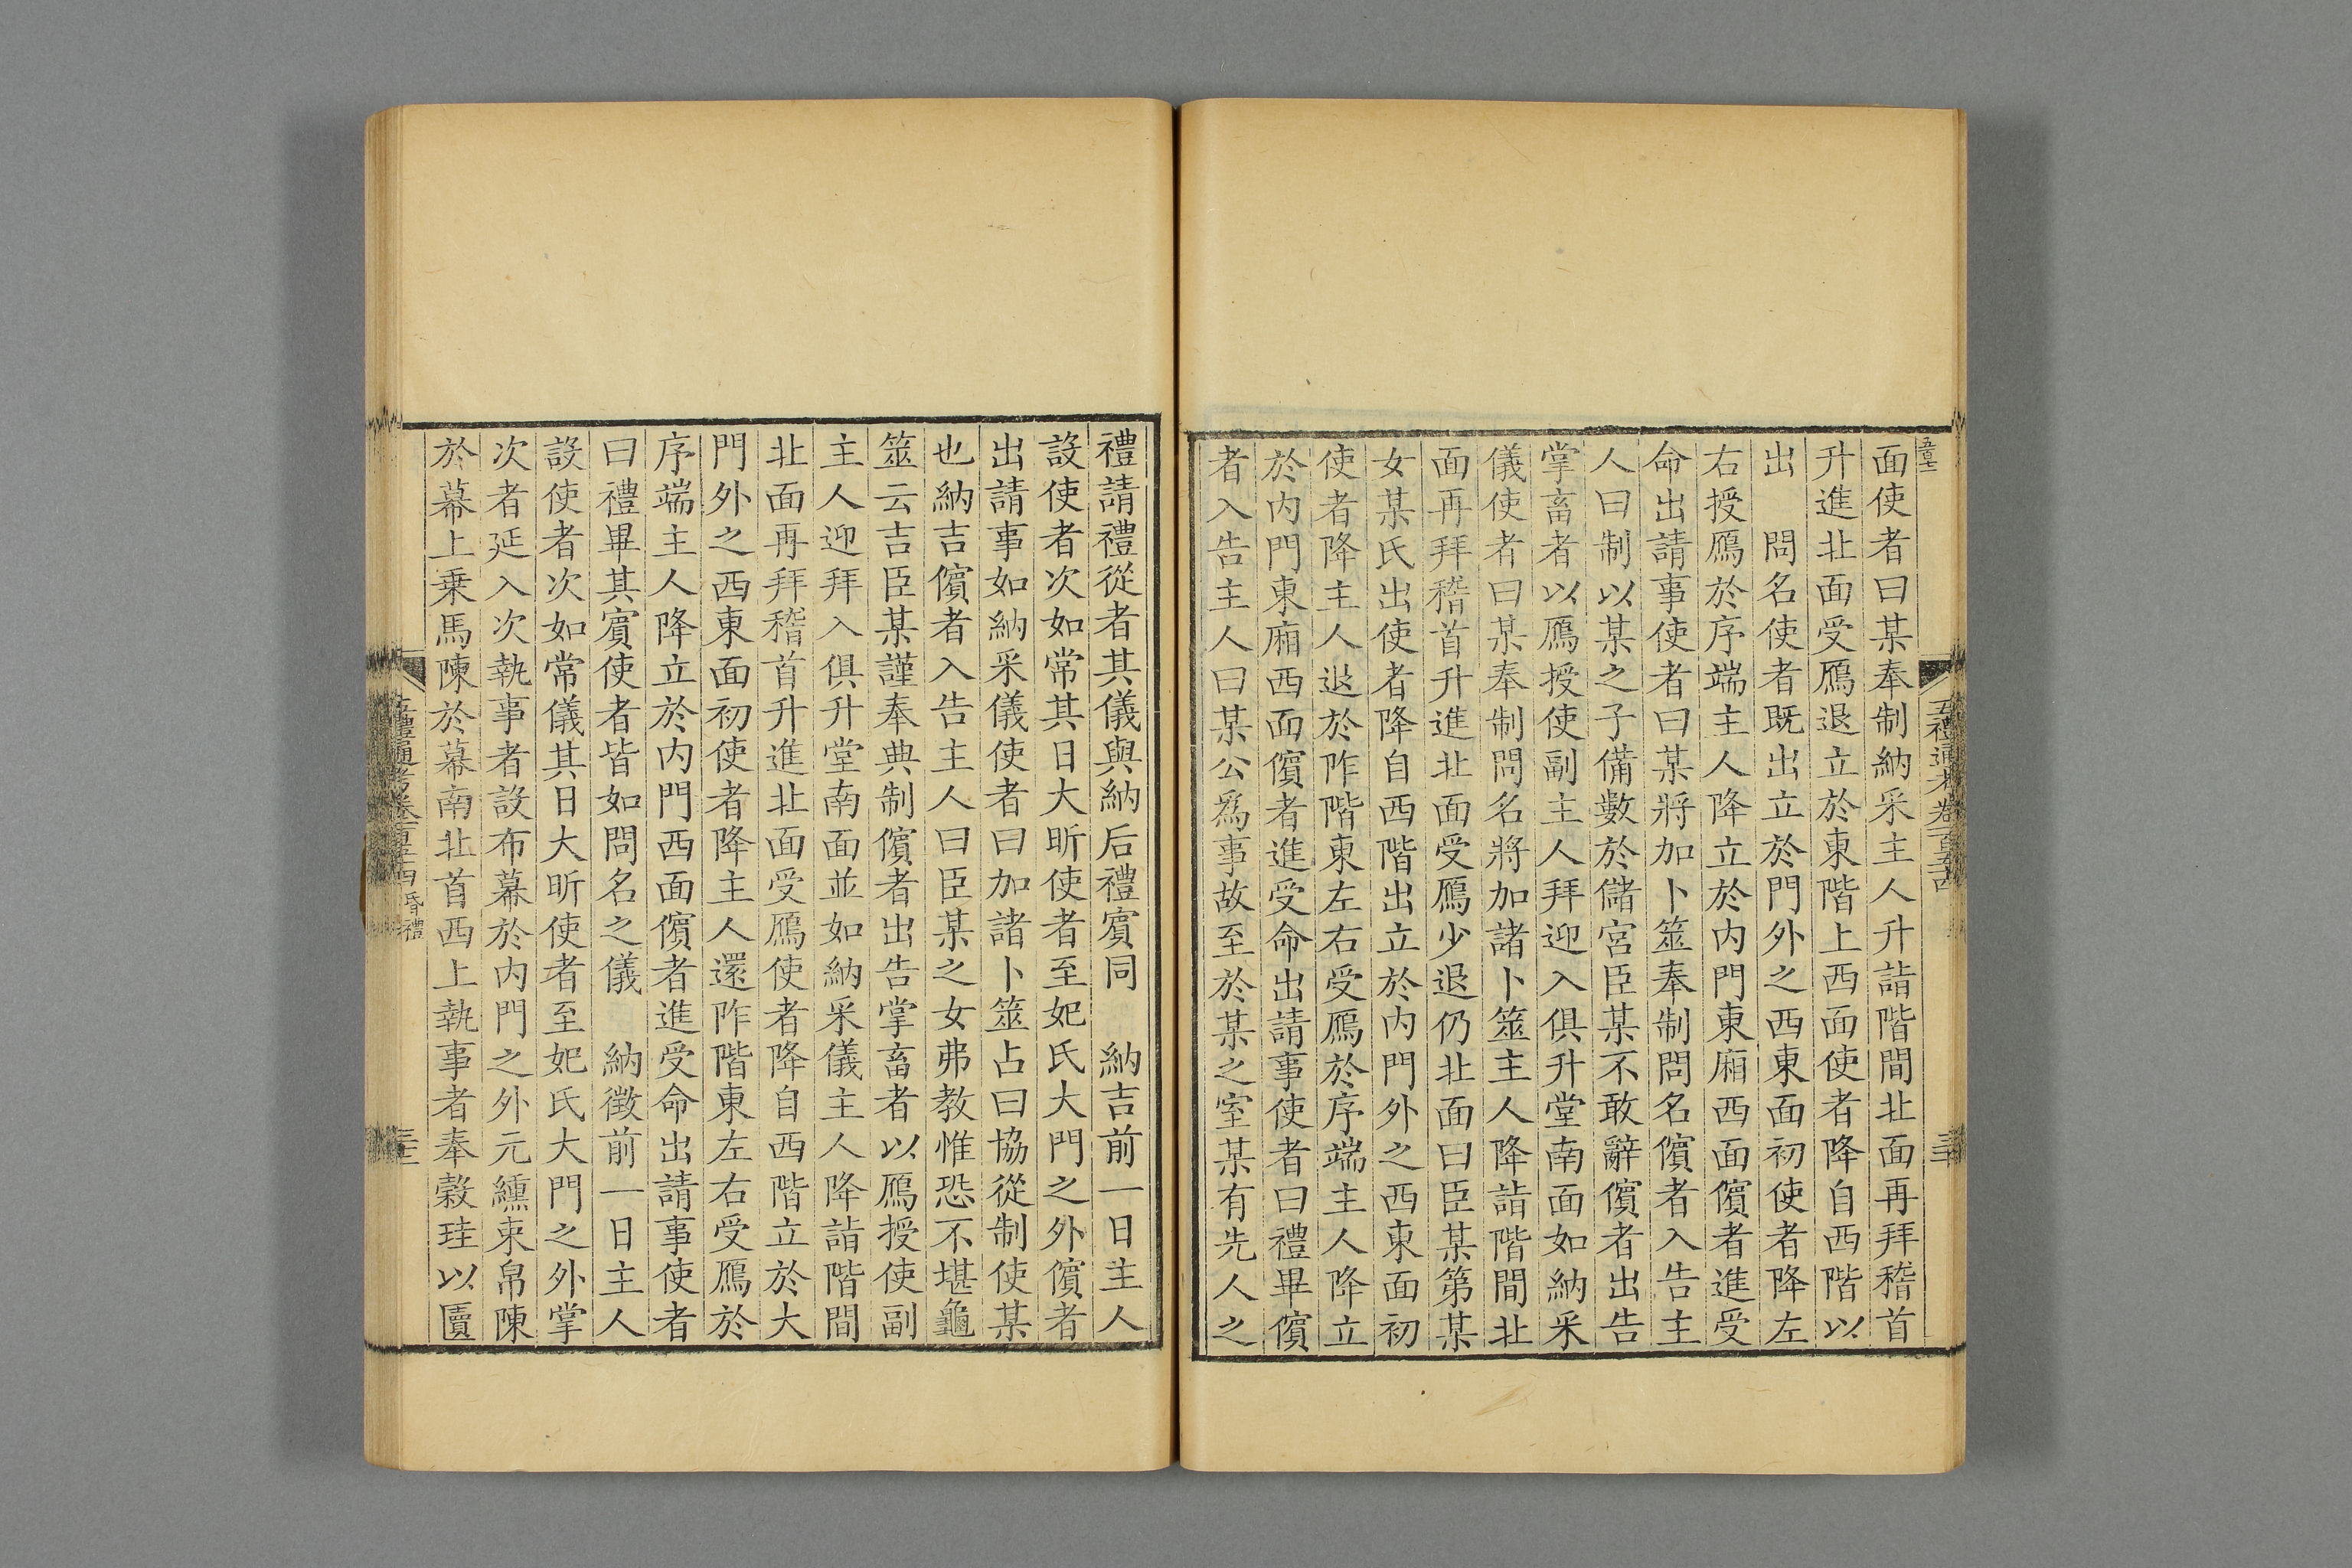 面使者曰某奉制納采主人升詣階間北面再拜稽首
升進北面受鴈退立於東階上西面使者降自西階以
出　問名使者既出立於門外之西東面初使者降左
右授鴈於序端主人降立於內門東廂西面儐者進受
命出請事使者曰某將加卜筮奉制問名儐者入告主
人曰制以某之子備數於儲宮臣某不敢辭儐者出告
掌畜者以鴈授使副主人拜迎入俱升堂南面如納采
儀使者曰某奉制問名將加諸卜筮主人降詣階間北
面再拜稽首升進北面受鴈少退仍北面曰臣某第某
女某氏出使者降自西階出立於內門外之西東面初
使者降主人退於阼階東左右受鴈於序端主人降立
於內門東廂西面儐者進受命出請事使者曰禮畢儐
者入告主人曰某公爲事故至於某之室某有先人之
禮請禮從者其儀與納后禮賓同　納吉前一日主人
設使者次如常其日大昕使者至妃氏大門之外儐者
出請事如納采儀使者曰加諸卜筮占曰協從制使某
也納吉儐者入告主人曰臣某之女弗教惟恐不堪龜
筮云吉臣某謹奉典制儐者出告掌畜者以鴈授使副
主人迎拜入俱升堂南面並如納采儀主人降詣階間
北面再拜稽首升進北面受鴈使者降自西階立於大
門外之西東面初使者降主人還阼階東左右受鴈於
序端主人降立於內門西面儐者進受命出請事使者
曰禮畢其賓使者皆如問名之儀　納徵前一日主人
設使者次如常儀其日大昕使者至妃氏大門之外掌
次者延入次執事者設布幕於內門之外元纁束帛陳
於幕上乗馬陳於幕南北首西上執事者奉穀珪以匵
昏禮